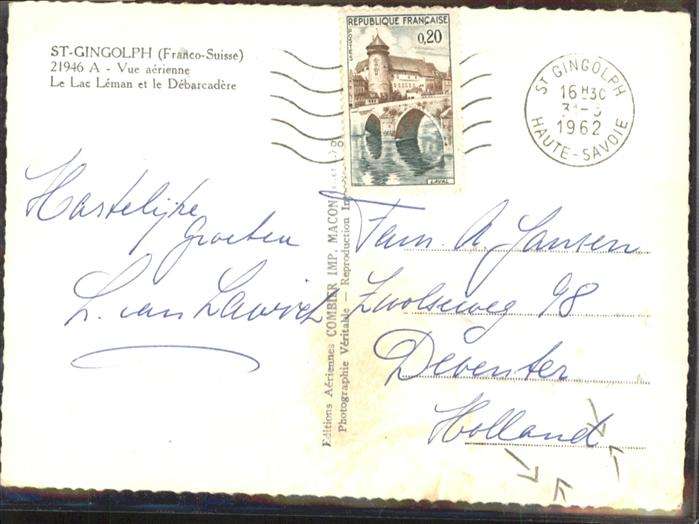 ST-GINGOLPH (Franco-Suisse)
21946 A - Vue aérienne
Le Lac Léman et le Débarcadère
RÉPUBLIQUE FRANÇAISE
0,20
LAVAL
ST GINGOLPH
16H30
1962
HAUTE-SAVOIE
Hartelijke
Groeten
L. van
Editions Aériennes COMBIER IMP. MACON
Photographie Véritable — Reproduction
Fam. A. Jansen
Zwolseweg 98
Deventer
Holland